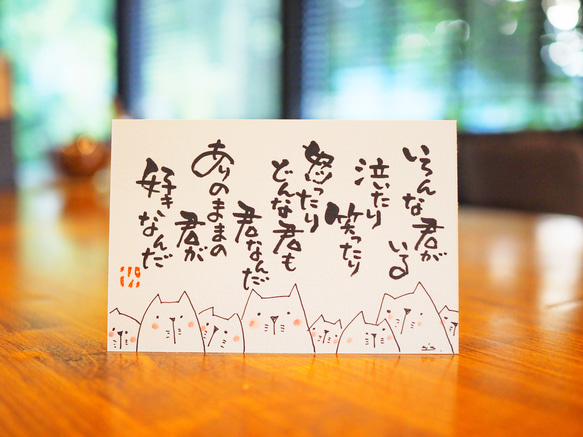 いろんな君が
いる
泣いたり
笑ったり
怒ったり
どんな君も
君なんだ
ありのままの
君が
好きなんだ